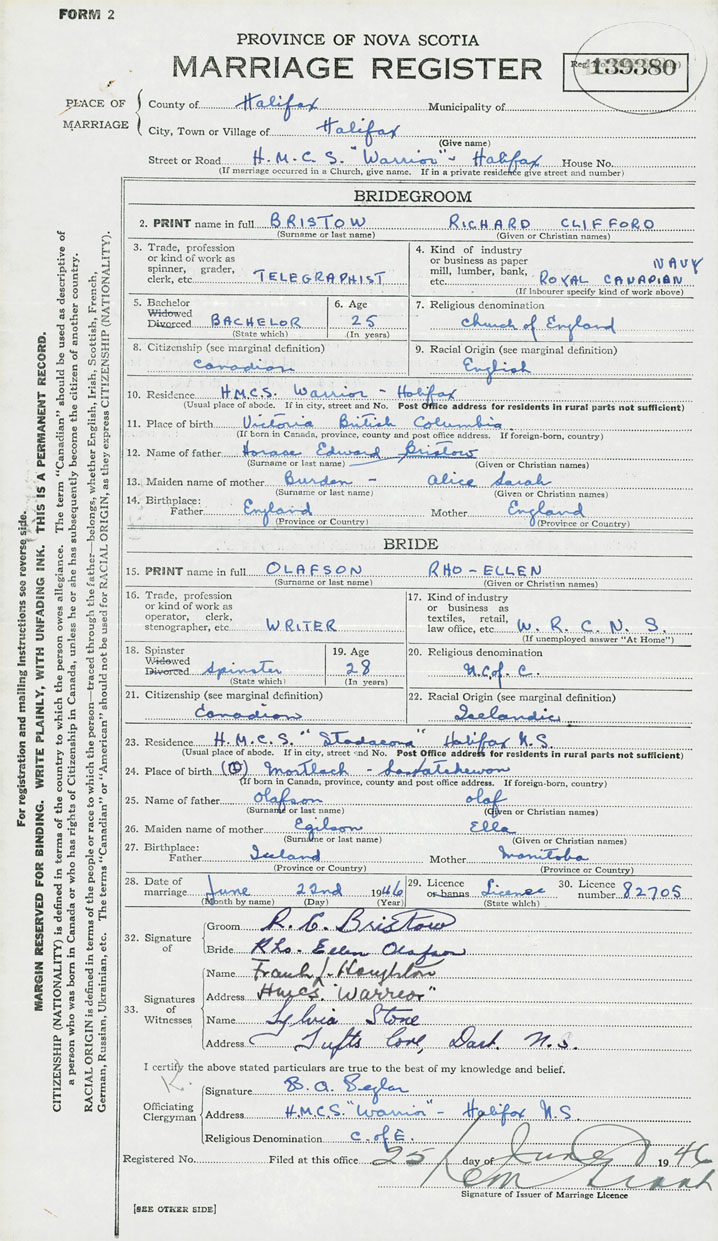 FORM 2
PROVINCE OF NOVA SCOTIA
MARRIAGE REGISTER
Reg. 139380
PLACE OF MARRIAGE
County of Halifax Municipality of
City, Town or Village of Halifax
(Give name)
Street or Road H.M.C.S. "Warrior" - Halifax House No.
(If marriage occurred in a Church, give name. If in a private residence give street and number)
BRIDEGROOM
2. PRINT name in full BRISTOW RICHARD CLIFFORD
(Surname or last name) (Given or Christian names)
3. Trade, profession or kind of work as spinner, grader, clerk, etc. TELEGRAPHIST
4. Kind of industry or business as paper mill, lumber, bank, etc. ROYAL CANADIAN NAVY
(If labourer specify kind of work above)
5. Bachelor Widowed Divorced BACHELOR
(State which)
6. Age 25
(In years)
7. Religious denomination
Church of England
8. Citizenship (see marginal definition)
Canadian
9. Racial Origin (see marginal definition)
English
10. Residence H.M.C.S. Warrior - Halifax
(Usual place of abode. If in city, street and No. Post Office address for residents in rural parts not sufficient)
11. Place of birth Victoria British Columbia
(If born in Canada, province, county and post office address. If foreign-born, country)
12. Name of father Horace Edward Bristow
(Surname or last name) (Given or Christian names)
13. Maiden name of mother Burden - Alice Sarah
(Surname or last name) (Given or Christian names)
14. Birthplace:
Father England Mother England
(Province or Country) (Province or Country)
BRIDE
15. PRINT name in full OLAFSON RHO-ELLEN
(Surname or last name) (Given or Christian names)
16. Trade, profession or kind of work as operator, clerk, stenographer, etc WRITER
17. Kind of industry or business as textiles, retail, law office, etc. W.R.C.N.S.
(If unemployed answer "At Home")
18. Spinster Widowed Divorced Spinster
(State which)
19. Age 28
(In years)
20. Religious denomination
U.C. of C.
21. Citizenship (see marginal definition)
Canadian
22. Racial Origin (see marginal definition)
Icelandic
23. Residence H.M.C.S. "Stadacona" Halifax N.S.
(Usual place of abode. If in city, street and No. Post Office address for residents in rural parts not sufficient)
24. Place of birth Mortlach - Saskatchewan
(If born in Canada, province, county and post office address. If foreign-born, country)
25. Name of father Olafson Olaf
(Surname or last name) (Given or Christian names)
26. Maiden name of mother Egilson Ella
(Surname or last name) (Given or Christian names)
27. Birthplace:
Father Iceland Mother Manitoba
(Province or Country) (Province or Country)
28. Date of marriage June 22nd 1946
(Month by name) (Day) (Year)
29. Licence or banns Licence
(State which)
30. Licence number 82705
32. Signature of
Groom R. C. Bristow
Bride Rho-Ellen Olafson
33. Signatures of Witnesses
Name Frank J. Houghton
Address HMCS "Warrior"
Name Sylvia Stone
Address Tufts Cove, Dart. N.S.
I certify the above stated particulars are true to the best of my knowledge and belief.
Officiating Clergyman
Signature B. A.
Address H.M.C.S. "Warrior" - Halifax N.S.
Religious Denomination C. of E.
Registered No. Filed at this office 25 day of June 1946
Signature of Issuer of Marriage Licence
[SEE OTHER SIDE]
For registration and mailing instructions see reverse side.
MARGIN RESERVED FOR BINDING. WRITE PLAINLY, WITH UNFADING INK. THIS IS A PERMANENT RECORD.
CITIZENSHIP (NATIONALITY) is defined in terms of the country to which the person owes allegiance. The term "Canadian" should be used as descriptive of
a person who was born in Canada or who has rights of Citizenship in Canada, unless he or she has subsequently become the citizen of another country.
RACIAL ORIGIN is defined in terms of the people or race to which the person—traced through the father—belongs, whether English, Irish, Scottish, French,
German, Russian, Ukrainian, etc. The terms "Canadian" or "American" should not be used for RACIAL ORIGIN, as they express CITIZENSHIP (NATIONALITY).